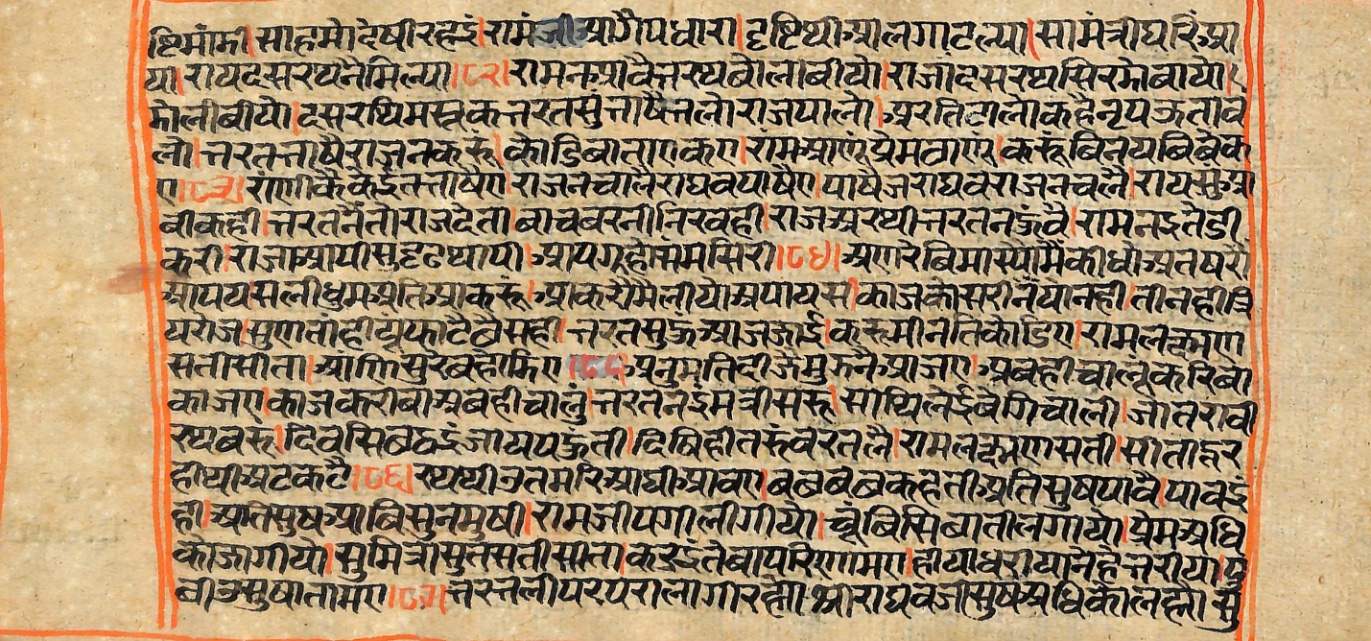 ष्टिमांमी।साहमोदेषीरह्मइं।रामंजीआगैपधारा।दृष्टिथीआलगाटल्या।सामंत्रीघरिंआ
या।रायदसरथनैमिल्या।८२।रामनआवैनरथबोलाबीयो।राजादसरथसिरमेबायो।
मोलीबीयो।दसरथिमस्नकभरतसुंभाषैभलोराजपालो।अरतिटालोकहैनृपऊताव
लो।भरतभाषैराजनकरूं।कोडिबाताएकए।रांमआणुंप्रेमवाणुं।करूंबिनयबिबेक
ए।८३।रांणीकैकेईनभाषैए।राजनचालैराघवपाषैए।पाषैजराघवराजनचलै।रायसुआ
बीकही।भरतनैतोराजदेता।बाचबरनीनिरवही।राजअरथीभरतनऊंवै।रामनइतेडी
करी।राजाआपीसुदृढथापी।आपगृहौसंमसिरी।८४।अणरेबिमास्यौमैंकीधोअतषरौ
आपयसलीधुमअतिआकरू।आकरौमैलीयोअपायस।काजकोसरीनयानही।तीनहीत्रि
यराज।सुणतांहीयूंफाटैवैसही।भरतसुऊंआजजाई।करूमीनतिकोडिए।रामलक्ष्मण
सतीसीता।आंणिसुंरबहोडिए।८५।अनुमतिदीजैमुझनैआजए।अबहीचालूंकरिबा
काजए।काजकरीबाअबहीचालुं।भरतनइंमंत्रीसरू।साथिलेईबेगिचाली।जोतरावी
रथबरूं।दिवसिबछइंजायपऊंती।दिषिहीतरूंवरतलै।रामलक्ष्मणसती।सीताह्नर
हीथीअटकटै।८६।रथथीउतमरिआघीआवए।बबबेबकहेतीअतिसुषपावै।पावइं
ही।अतिसुषआबिसुनमुषी।रामजीपगीलीगीयो।चूंबिसिबातीलगायो।प्रेमअधि
कोजागीयो।सुमित्रासुतसतीसीता।करइंतेबापरिणामए।हीयाधरीयानेहैभरीया।पु
बीउसुषातामए।८७।भरतलीपरपरालागीरह्मो।श्रीराघवजीसुषअधिकोलह्मो।सु